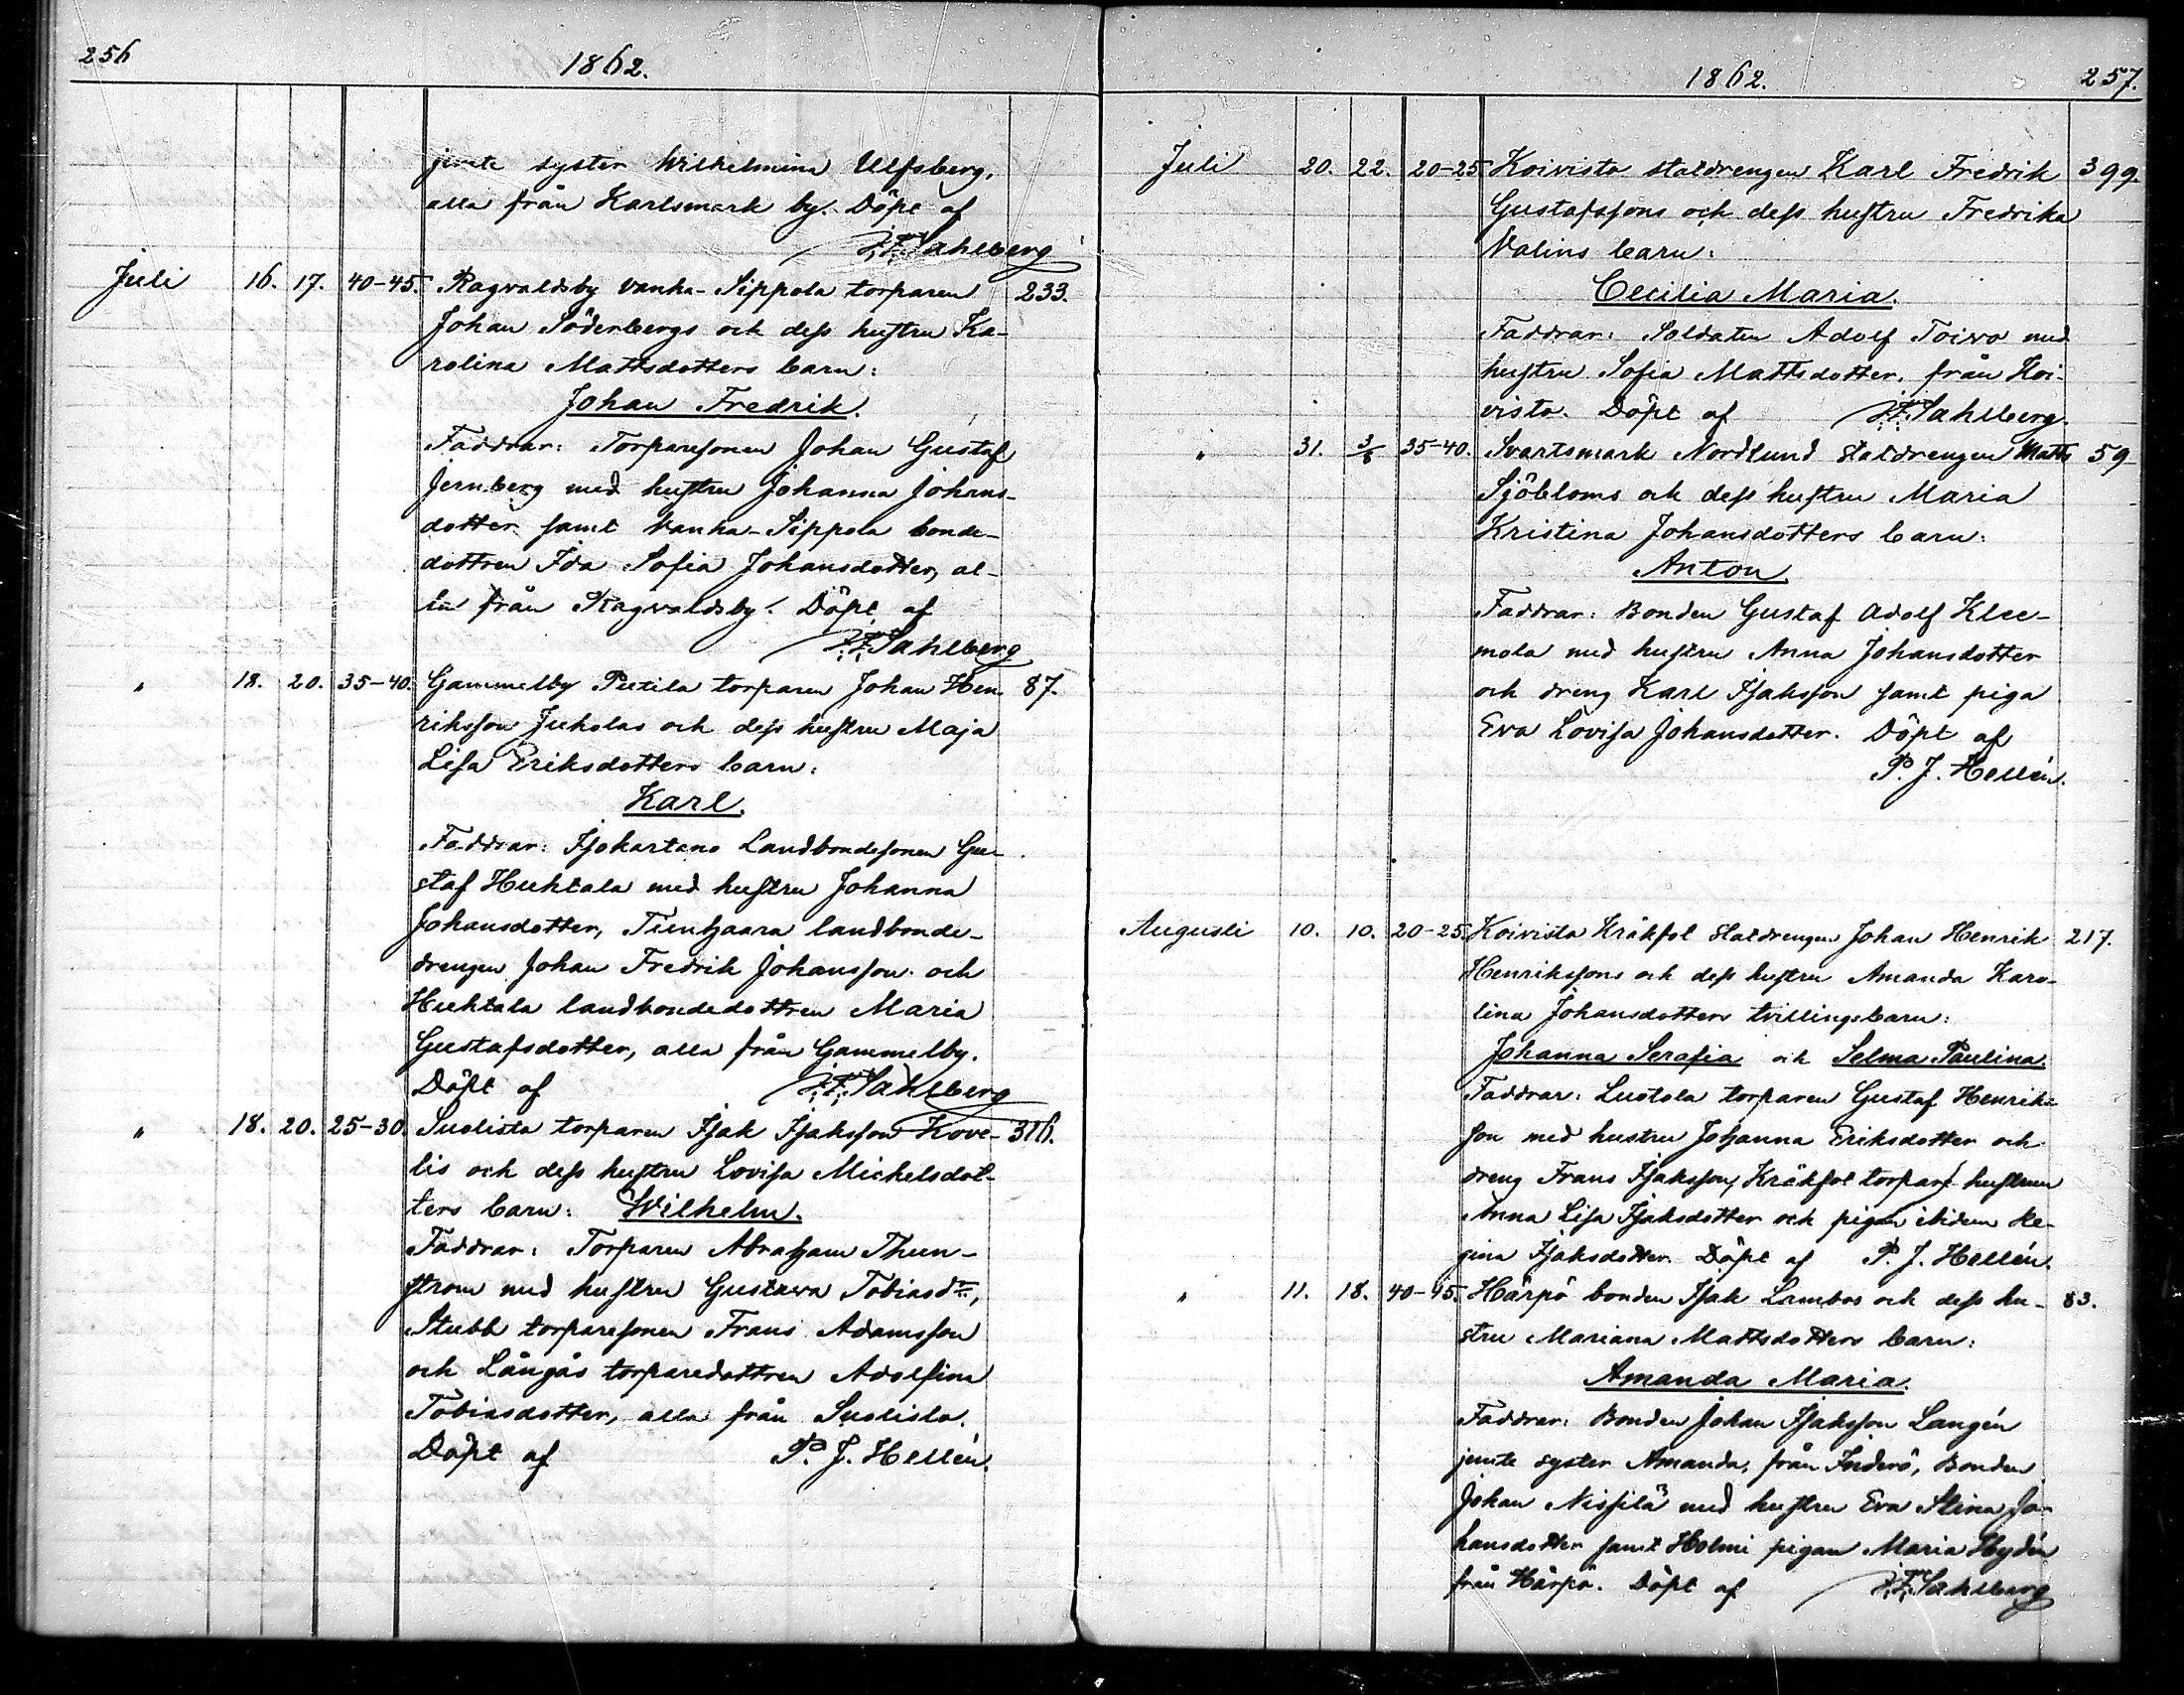 256
1862.
jemte syster Wilhelmina Ulfsberg,
alla från Karlsmark by. Döpt af
J.F. Sahlberg
Juli 16. 17. 40-45. Ragvaldsby Vanha-Sippola torparen 233.
Johan Söderbergs och dess hustru Ka-
rolina Mattsdotters barn:
Johan Fredrik.
Faddrar: Torparesonen Johan Gustaf
Jernberg med hustru Johanna Johans-
dotter samt Vanha-Sippola bonde-
dottren Ida Sofia Johansdotter, al-
la från Ragvaldsby. Döpt af
J.F. Sahlberg
" 18. 20. 35-40. Gammelby Putila torparen Johan Hen- 87.
riksson Jukolas och dess hustru Maja
Lisa Eriksdotters barn:
Karl.
Faddrar: Isokartano Landbondesonen Gu-
staf Huhtala med hustru Johanna
Johansdotter, Tienhaara landbonde-
drengen Johan Fredrik Johansson och
Huhtala landbondedottren Maria
Gustafsdotter, alla från Gammelby.
Döpt af J.F. Sahlberg
" 18. 20. 25-30. Suolista torparen Isak Isaksson Kove- 316.
lis och dess hustru Lovisa Michelsdot-
ters barn: Wilhelm.
Faddrar: Torparen Abraham Thun-
strom med hustru Gustava Tobiasdr,
Stubb torparesonen Frans Adamsson
och Långås torparedottren Adolfina
Tobiasdotter, alla från Suolista.
Döpt af P. J. Hellén.
1862.
257.
Juli 20. 22. 20-25. Koivisto statdrengen Karl Fredrik 399.
Gustafssons och dess hustru Fredrika
Valins barn:
Cecilia Maria.
Faddrar: Soldaten Adolf Toivo med
hustru Sofia Mattsdotter, från Koi-
visto. Döpt af J.F. Sahlberg.
" 31. 3/8 35-40. Svartsmark Nordlund statdrengen Matts 59
Sjöbloms och dess hustru Maria
Kristina Johansdotters barn:
Anton.
Faddrar: Bonden Gustaf Adolf Klee-
mola med hustru Anna Johansdotter
och dreng Karl Isaksson samt piga
Eva Lovisa Johansdotter. Döpt af
P. J. Hellén.
Augusti 10. 10. 20-25. Koivisto Kråkfot statdrengen Johan Henrik 217.
Henrikssons och dess hustru Amanda Karo-
lina Johansdotters tvillingsbarn:
Johanna Serafia och Selma Paulina.
Faddrar: Lustola torparen Gustaf Henriks-
son med hustru Johanna Eriksdotter och
dreng Frans Isaksson, Kråkfot torpare hustrun
Anna Lisa Isaksdotter och pigan ibidem Re-
gina Isaksdotter. Döpt af P. J. Hellén.
" 11. 18. 40-45. Härpö bonden Isak Lambos och dess hu- 83.
stru Mariana Mattsdotters barn:
Amanda Maria.
Faddrar: Bonden Johan Isaksson Langén
jemte syster Amanda, från Inderö, Bonden
Johan Nissilä med hustru Eva Stina Jo-
hansdotter samt Holmi pigan Maria Hydén
från Härpö. Döpt af J.F. Sahlberg